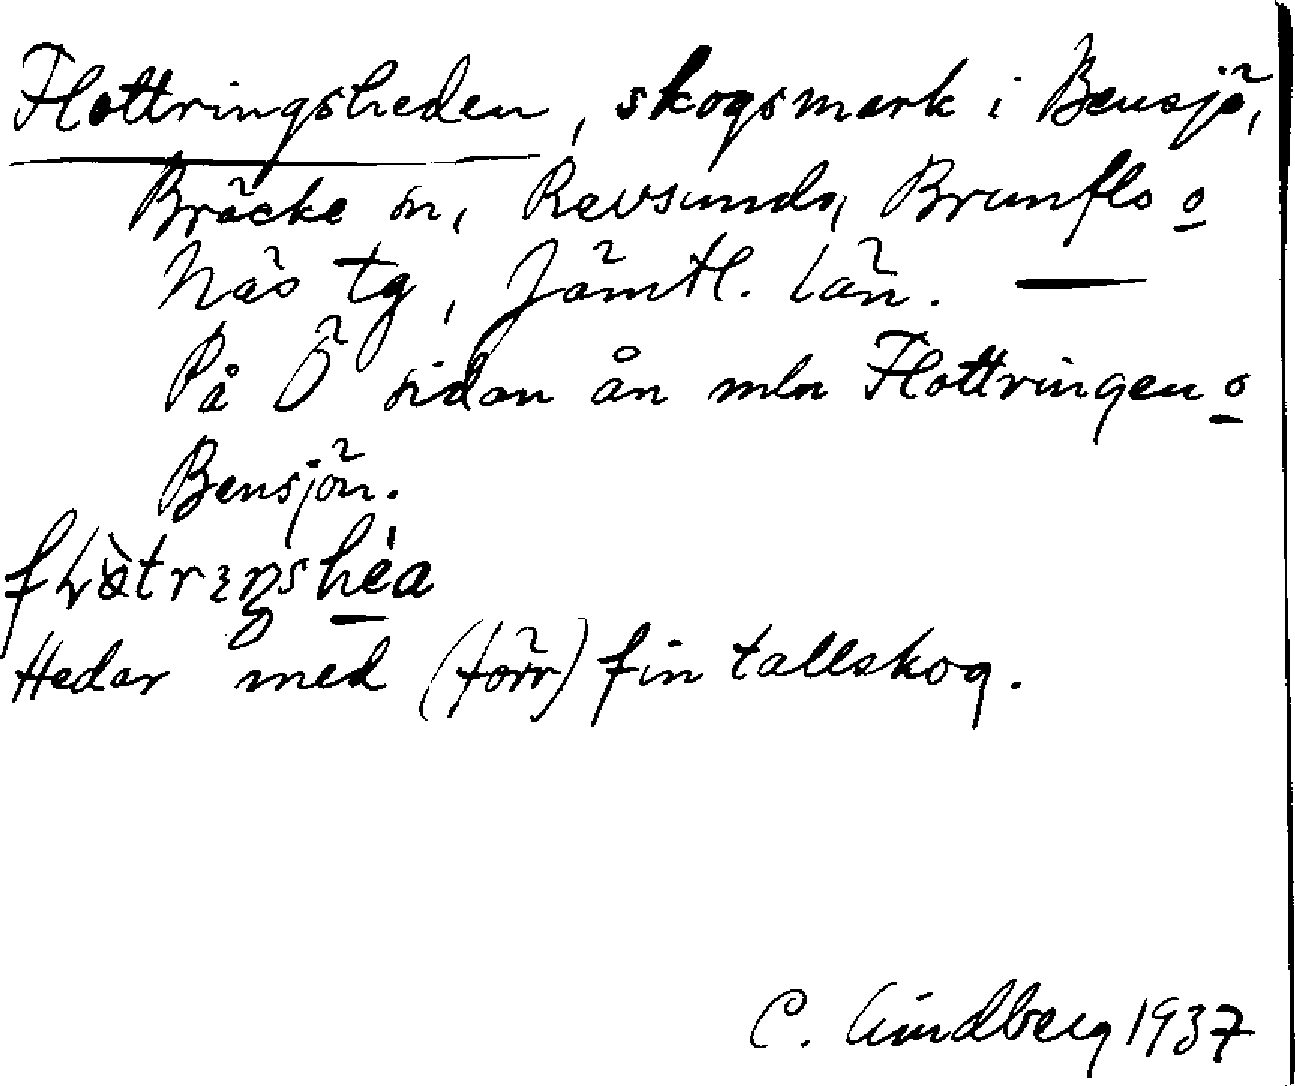 Flottringsheden, skogsmark i Bensjö,
Bräcke sn, Revsunds, Brunflo o
Näs tg, Jämtl. län. —
På Ö sidan ån mln Flottringen o
Bensjön.
Hedar med (törr) fin tallskog.
C. Lindberg 1937